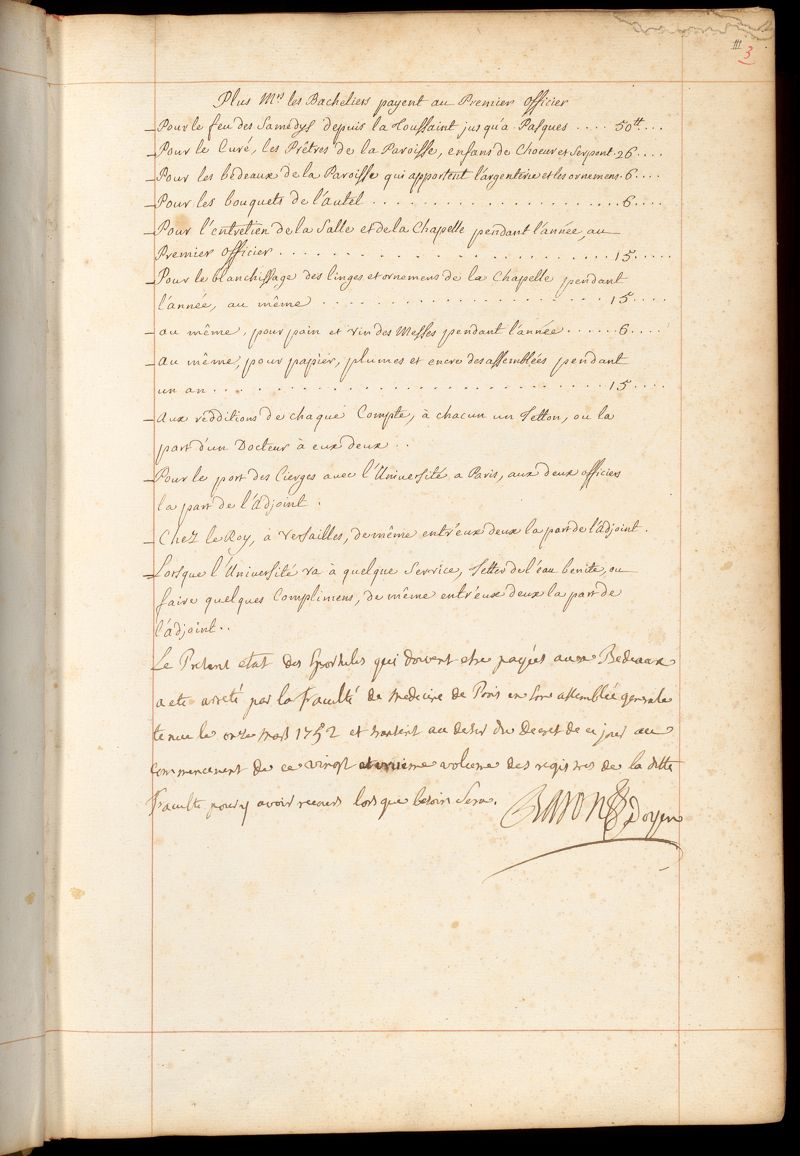 III
3
Plus Mrs les Bacheliers payent au Premier officier
Pour le feu des Samedys depuis la Toussaint jusqu'a Pasques .... 50tt....
Pour le Curé, les Prêtres de la Paroisse, enfans de Choeur et Serpent. 26....
Pour les bédeaux de la Paroisse qui apportent l'argenterie et les ornemens. 6....
Pour les bouquets de l'autel ........................ 6....
Pour l'entretien de la Salle et de la Chapelle pendant l'année, au
Premier officier ........................ 15....
Pour le blanchissage des linges et ornemens de la Chapelle pendant
l'année, au même ........................ 15....
au même, pour pain et vin des Messes pendant l'année ...... 6....
Au même, pour papier, plumes et encre des assemblées pendant
un an ........................ 15....
Aux rédditions de chaque Compte, à chacun un Jetton, ou la
part d'un Docteur à eux deux ..
Pour le port des Cierges avec l'Université a Paris, aux deux officiers
la part de l'Adjoint .
Chez le Roy, à Versailles, de même entr'eux deux la part de l'adjoint .
Lorsque l'Université va à quelque Service, Jetter de l'eau benite, ou
faire quelques Complimens, de même entr'eux deux la part de
l'adjoint ..
Le Présent etat des Sportules qui doivent etre payées aux Bedeaux
a ete arreté par la Faculté de medecine de Paris en son assemblée generale
tenue le onze mars 1752 et au desir du Decret de ce jour au
commencement de ce vingt et unieme volume des registres de la ditte
Faculté pour y avoir recours lors que besoin Sera.
Baron Doyen